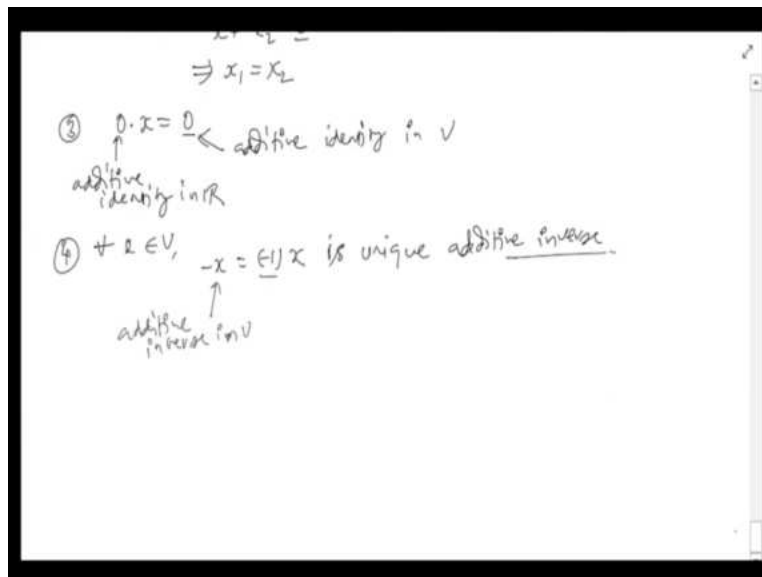 ⇒ x₁ = x₂
③ 0·x = 0 ← additive identity in V
additive
identity in ℝ
④ ∀ x ∈ V, -x = (-1) x is unique additive inverse
additive
inverse in V